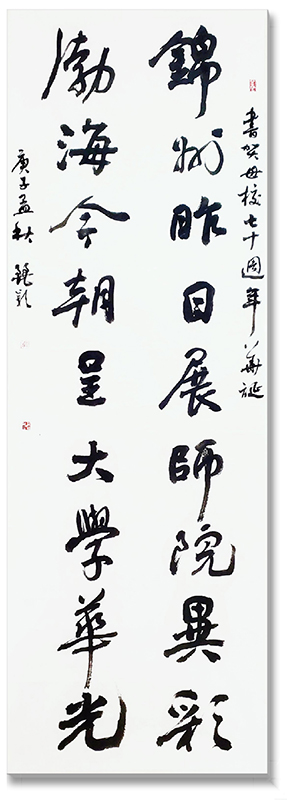 書賀母校七十週年華誕
錦州昨日展師院異彩
渤海今朝呈大學華光
庚子孟秋